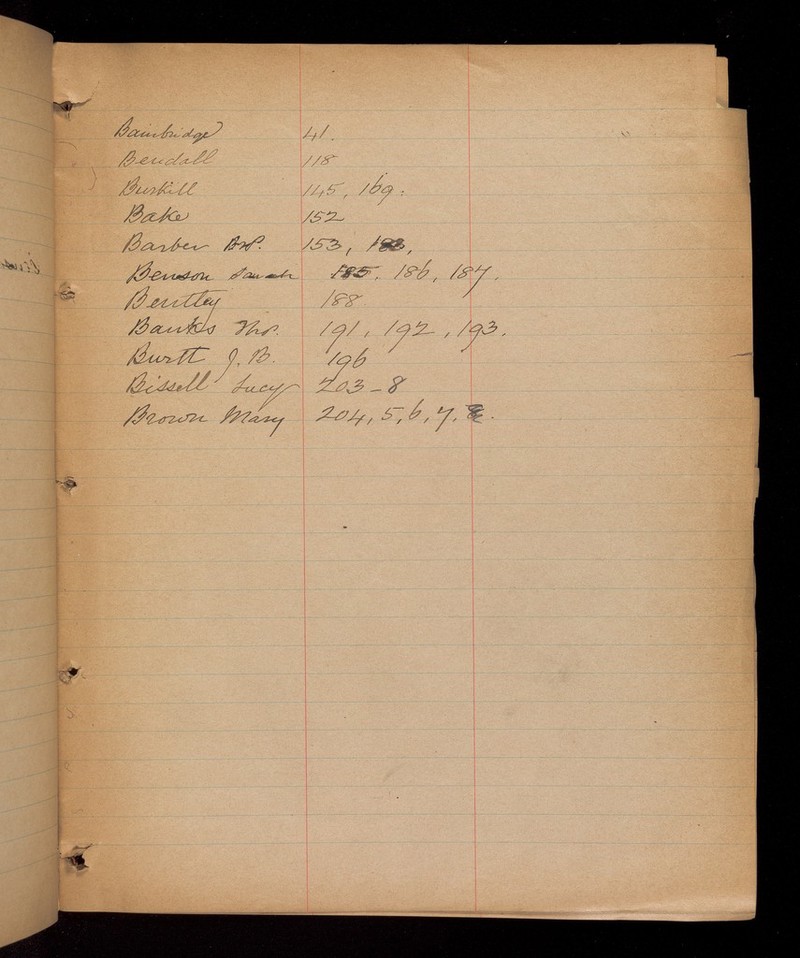 Bainbridge 41.
Bendall 118
Burkill 145, 169.
Bake 152
Barber 153,
Benson Sarah 185, 186, 187.
Bentley 188
Banks Thos. 191, 192, 193.
Burtt J. B. 196
Bissell Lucy 203-8
Brown Mary 204, 5, 6, 7,